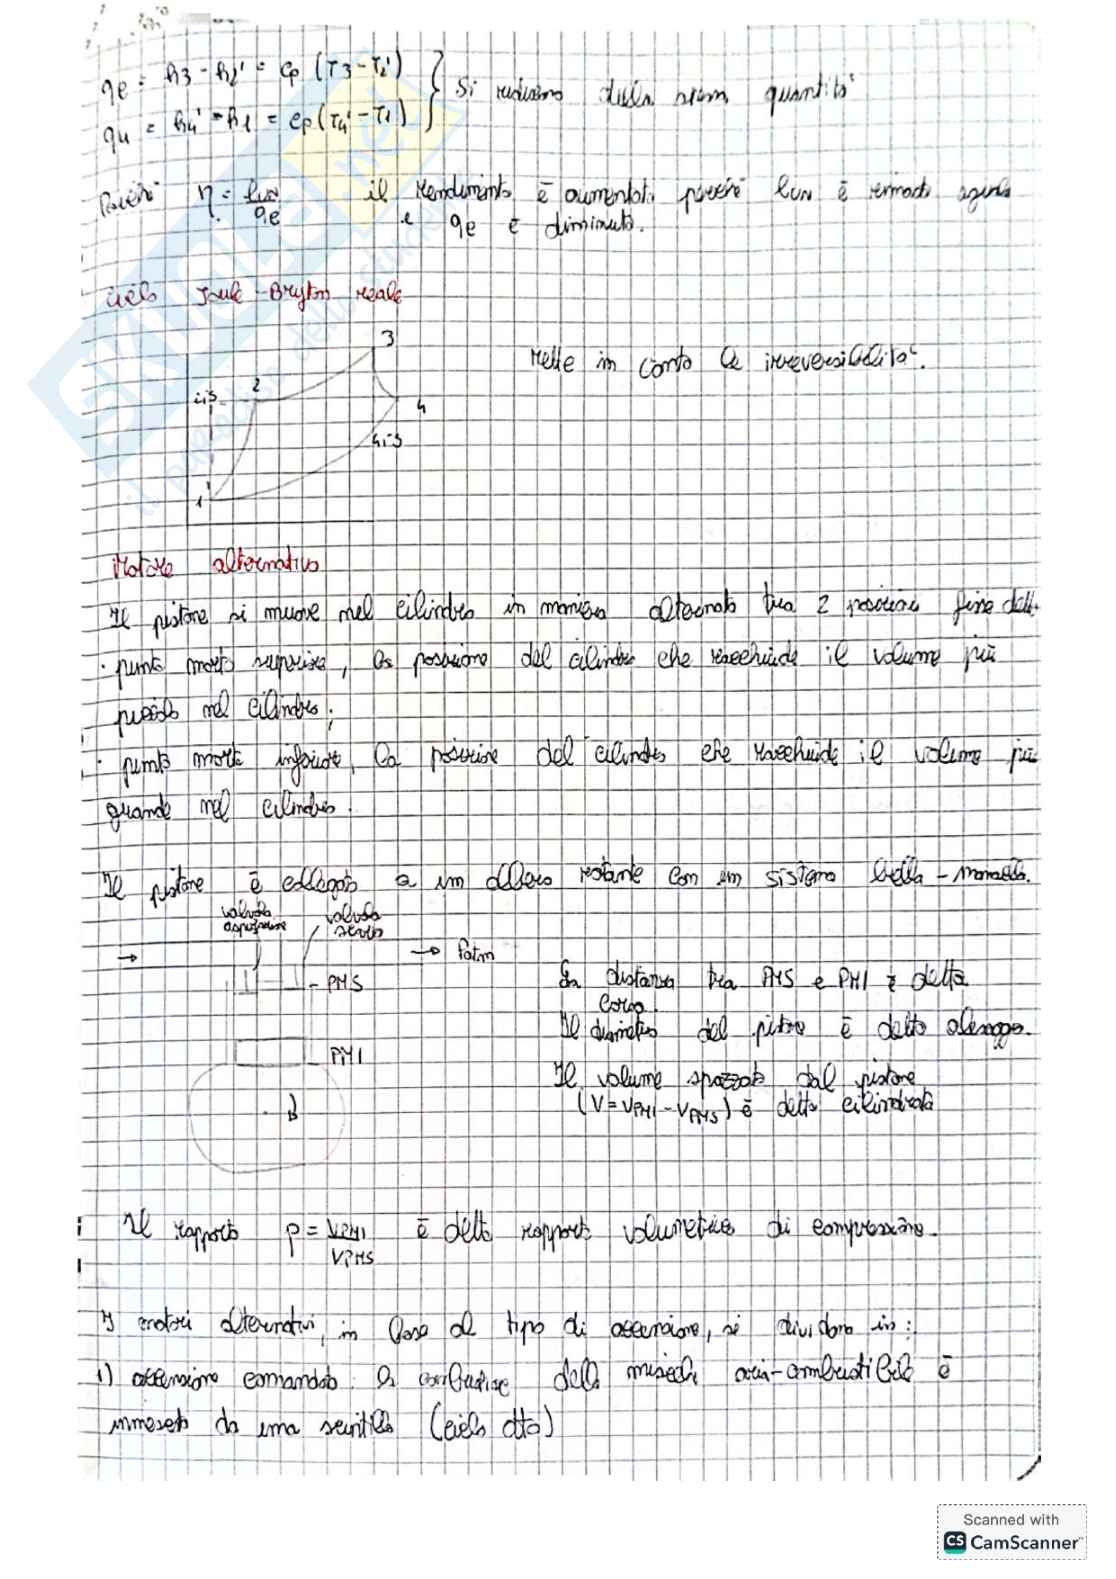 qe = h3 - h2' = cp (T3 - T2')
qu = h4' - h1 = cp (T4' - T1) } Si riducono della stessa quantità
Poiché η = lun/qe il rendimento è aumentato perché lun è rimasto uguale
e qe è diminuito.
Ciclo Joule-Bryton reale
3
Mette in conto le irreversibilità.
2is 2
4
4is
1
Motore alternativo
Il pistone si muove nel cilindro in maniera alternata tra 2 posizioni fisse dette
· punto morto superiore, la posizione del cilindro che racchiude il volume più
piccolo nel cilindro;
· punto morto inferiore, la posizione del cilindro che racchiude il volume più
grande nel cilindro.
Il pistone è collegato a un albero rotante con un sistema biella-manovella.
valvola aspirazione
valvola scarico
→ → Patm
PMS
PMI
La distanza tra PMS e PMI è detta
corsa.
Il diametro del pistone è detto alesaggio.
Il volume spazzato dal pistone
(V = VPMI - VPMS) è detto cilindrata
Il rapporto ρ = VPMI/VPMS è detto rapporto volumetrico di compressione.
I motori alternativi, in base al tipo di accensione, si dividono in:
1) accensione comandata: la combustione della miscela aria-combustibile è
innescata da una scintilla (ciclo otto)
SKUOLA.net
il paradiso dello studente
Scanned with
CS CamScanner